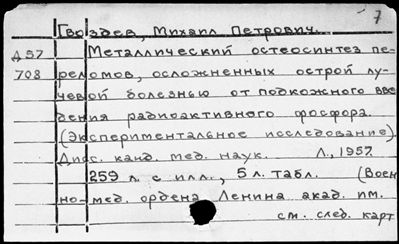 7
Гвоздев, Михаил Петрович.
Д57 Металлический остеосинтез пе-
708 реломов, осложненных острой лу-
чевой болезнью от подкожного вве
дения радиоактивного фосфора.
(Экспериментальное исследование).
Дисс. канд. мед. наук. Л., 1957.
259 л. с илл., 5 л. табл. (Воен
но-мед. ордена Ленина акад. им.
см. след. карт